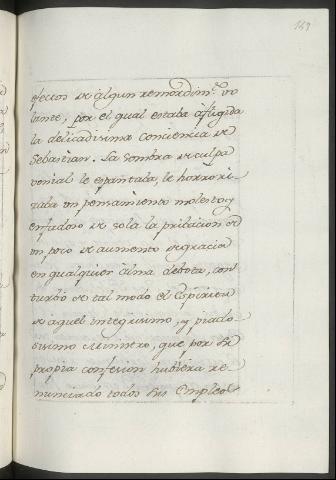 149
efectos de algun remordim.to vo
lante, por el qual estaba afligida
la delicadisima conciencia de
Sebastian. La sombra de culpa
venial le espantaba, le horrori
zaba un pensamiento molesto, y
enfadoso de sola la privacion de
un poco de aumento de gracia
en qualquier alma debota, con
turbó de tal modo el Espiritu
de aquel integrisimo, y piado
sisimo Ministro, que por su
propia confesion hubiera re
nunciado todos sus Empleos